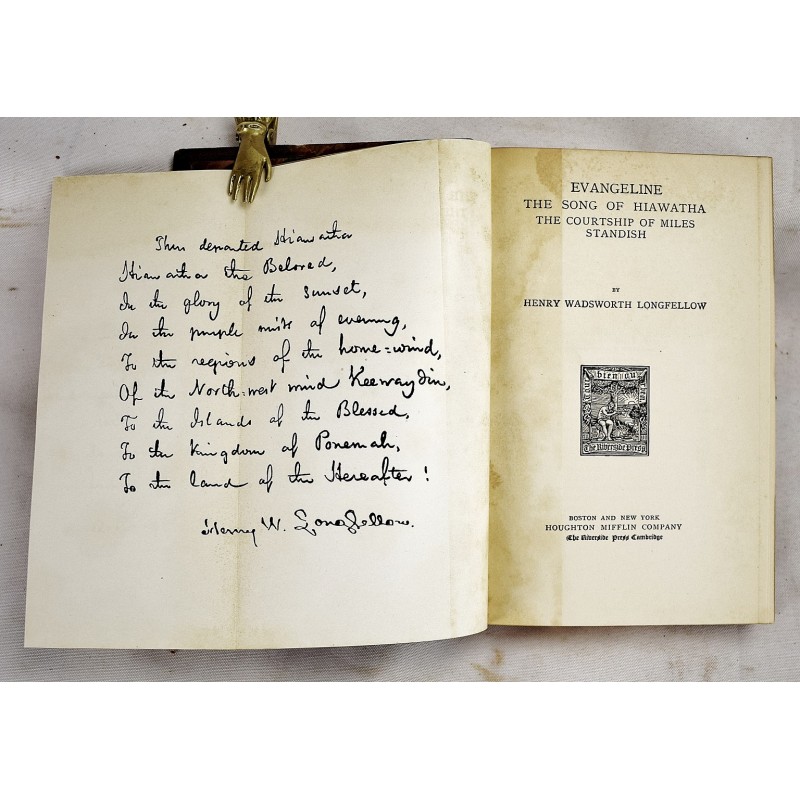 Thus departed Hiawatha
Hiawatha the Beloved,
In the glory of the sunset,
In the purple mists of evening,
To the regions of the home=wind,
Of the North=west wind Keewaydin,
To the Islands of the Blessed,
To the Kingdom of Ponemah,
To the land of the Hereafter!
Henry W. Longfellow.
EVANGELINE
THE SONG OF HIAWATHA
THE COURTSHIP OF MILES
STANDISH
BY
HENRY WADSWORTH LONGFELLOW
bien ou
The Riverside Press
BOSTON AND NEW YORK
HOUGHTON MIFFLIN COMPANY
The Riverside Press Cambridge